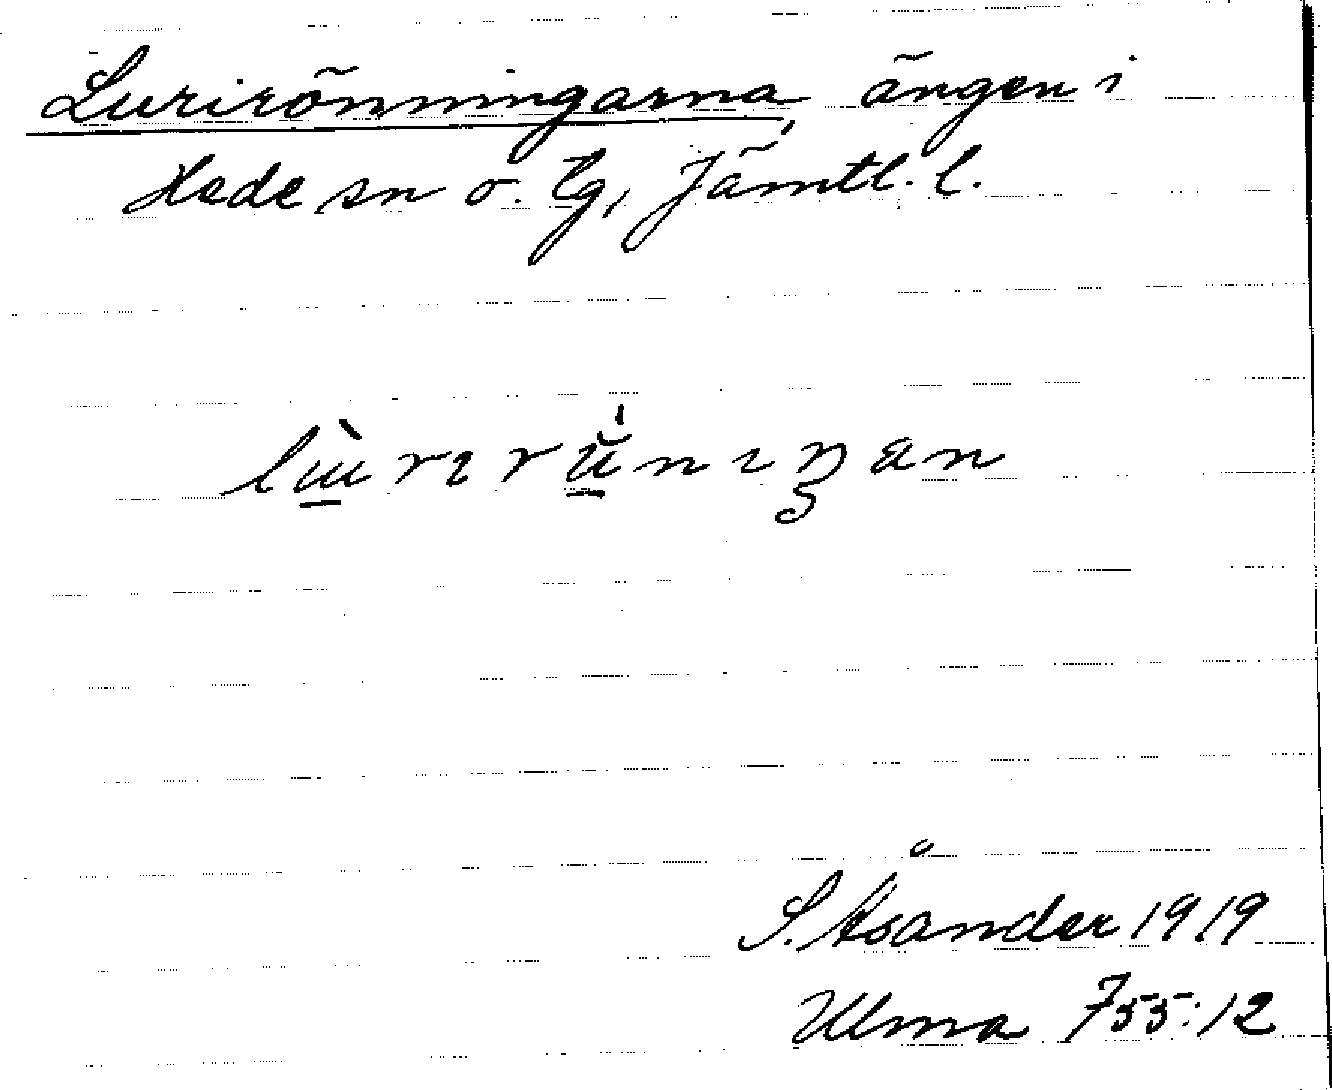 Lurirönningarna, ängen i
Hede sn o. tg, Jämtl. l.
S. Åsander 1919
Ulma 755:12